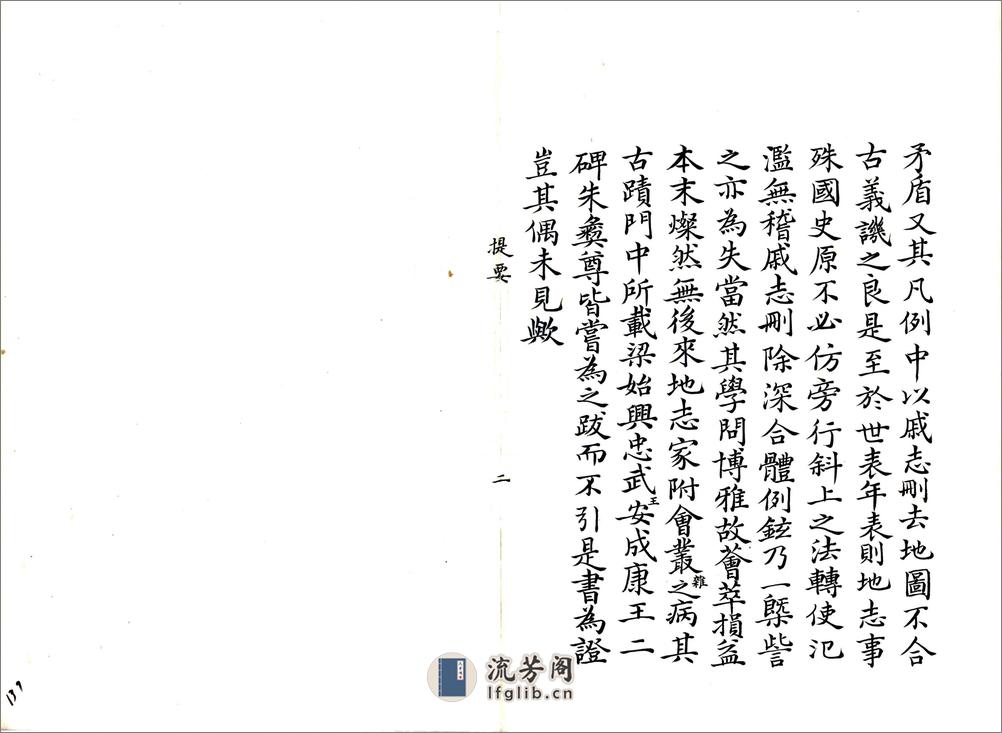 矛盾又其凡例中以戚志刪去地圖不合
古義譏之良是至於世表年表則地志事
殊國史原不必仿旁行斜上之法轉使氾
濫無稽戚志刪除深合體例鉉乃一槩訾
之亦為失當然其學問博雅故薈萃損益
本末燦然無後來地志家附會叢雜之病其
古蹟門中所載梁始興忠武王安成康王二
碑朱彝尊皆嘗為之跋而不引是書為證
豈其偶未見歟
提要
二
139
流芳阁
lfglib.cn